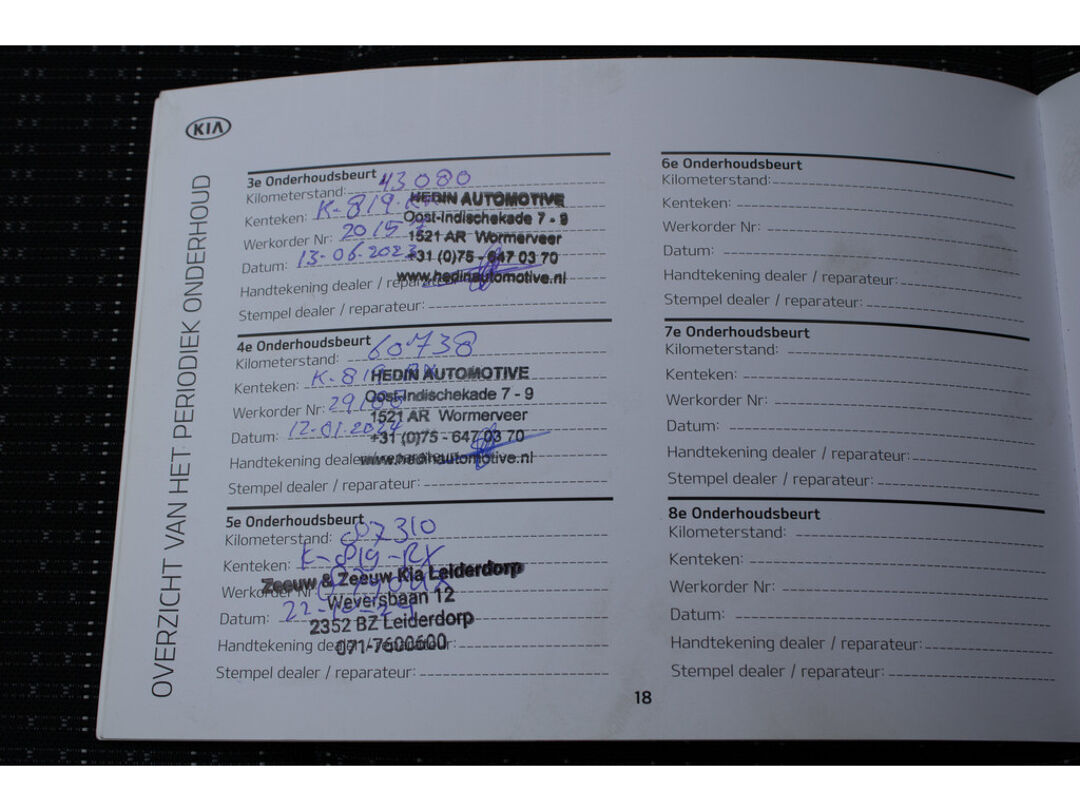 KIA
OVERZICHT VAN HET PERIODIEK ONDERHOUD
3e Onderhoudsbeurt
Kilometerstand: 43080
Kenteken: K-819-RX
HEDIN AUTOMOTIVE
Oost-Indischekade 7 - 9
Werkorder Nr: 20157
1521 AR Wormerveer
Datum: 13-06-2023
+31 (0)75 - 647 03 70
www.hedinautomotive.nl
Handtekening dealer / reparateur:
Stempel dealer / reparateur:
4e Onderhoudsbeurt
Kilometerstand: 60738
Kenteken: K-819-RX
HEDIN AUTOMOTIVE
Oost-Indischekade 7 - 9
Werkorder Nr:
1521 AR Wormerveer
Datum: 12-01-2024
+31 (0)75 - 647 03 70
Handtekening dealer / reparateur:
www.hedinautomotive.nl
Stempel dealer / reparateur:
5e Onderhoudsbeurt
Kilometerstand: 87310
Kenteken: K-819-RX
Zeeuw & Zeeuw Kia Leiderdorp
Werkorder Nr:
Weversbaan 12
Datum:
2352 BZ Leiderdorp
Handtekening dealer / reparateur:
071-7600600
Stempel dealer / reparateur:
6e Onderhoudsbeurt
Kilometerstand:
Kenteken:
Werkorder Nr:
Datum:
Handtekening dealer / reparateur:
Stempel dealer / reparateur:
7e Onderhoudsbeurt
Kilometerstand:
Kenteken:
Werkorder Nr:
Datum:
Handtekening dealer / reparateur:
Stempel dealer / reparateur:
8e Onderhoudsbeurt
Kilometerstand:
Kenteken:
Werkorder Nr:
Datum:
Handtekening dealer / reparateur:
Stempel dealer / reparateur:
18